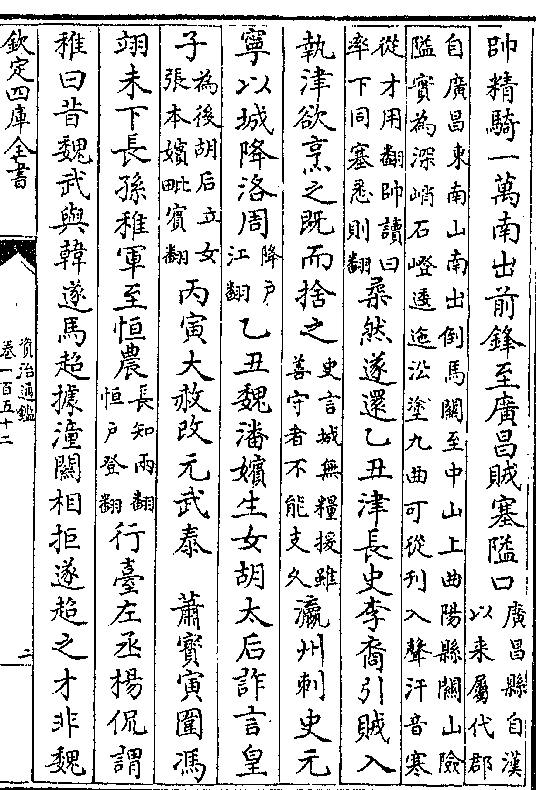 帥精騎一萬南出前鋒至廣昌賊塞隘口廣昌縣自漢以來屬代郡
自廣昌東南山南出倒馬闗至中山上曲陽縣闗山險隘實為深峭石磴逶迤沿塗九曲可從刋入聲汗音寒
從才用翻帥讀曰率下同塞悉則翻柔然遂還乙丑津長史李裔引賊入
執津欲烹之既而捨之史言城無糧援雖善守者不能支久瀛州刺史元
寧以城降洛周降户江翻乙丑魏潘嬪生女胡太后詐言皇
子為後胡后立女張本嬪毗賓翻丙寅大赦改元武泰　蕭寳寅圍馮
翊未下長孫稚軍至恒農長知兩翻恒户登翻行臺左丞楊侃謂
稚曰昔魏武與韓遂馬超據潼闗相拒遂超之才非魏
欽定四庫全書
資治通鑑
卷一百五十二
二